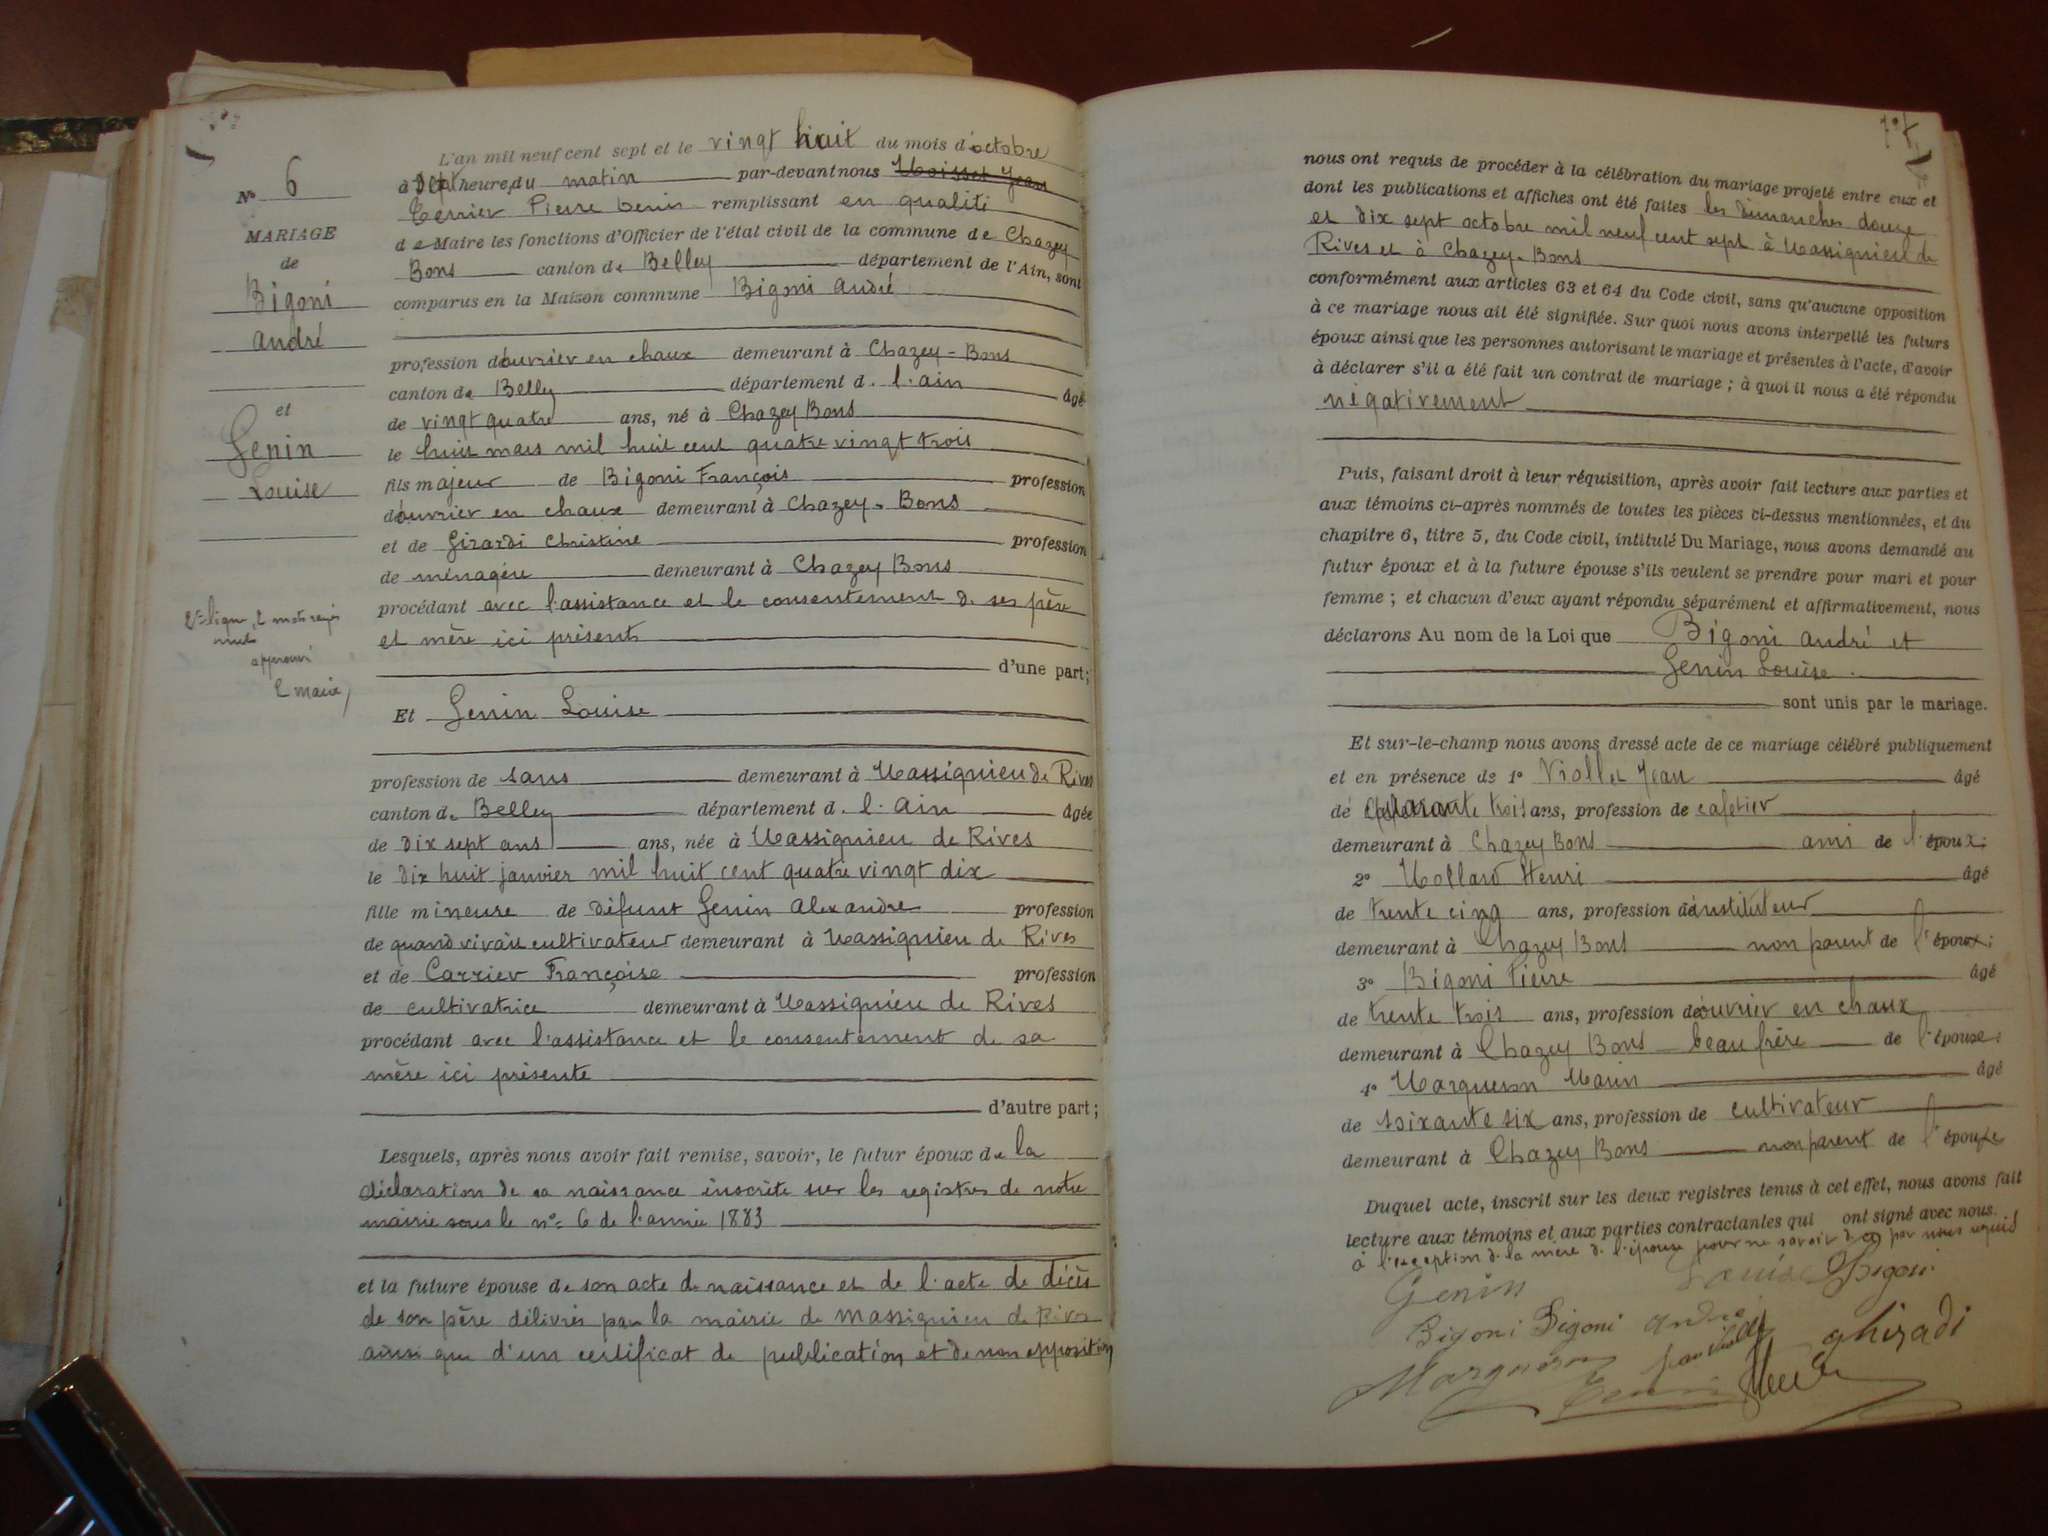 N° 6
MARIAGE
de
Bigoni
André
et
Genin
Louise
2e ligne, 2 mots rayés
nuls
approuvé
L maire,
L'an mil neuf cent sept et le vingt huit du mois d'octobre
à sept heure, du matin par-devant nous Moisset Jean
Terrier Pierre Denis remplissant en qualité
de Maire les fonctions d'Officier de l'état civil de la commune de Chazey
Bons canton de Belley département de l'Ain, sont
comparus en la Maison commune Bigoni André
profession d'ouvrier en chaux demeurant à Chazey-Bons
canton de Belley département d. l'ain âgé
de vingt quatre ans, né à Chazey Bons
le huit mars mil huit cent quatre vingt trois
fils majeur de Bigoni François profession
d'ouvrier en chaux demeurant à Chazey-Bons
et de Girardi Christine profession
de ménagère demeurant à Chazey Bons
procédant avec l'assistance et le consentement de ses père
et mère ici présents
d'une part;
Et Genin Louise
profession de sans demeurant à Massignieu de Rives
canton de Belley département d. l'Ain âgée
de dix sept ans ans, née à Massignieu de Rives
le dix huit janvier mil huit cent quatre vingt dix
fille mineure de défunt Genin Alexandre profession
de quand vivait cultivateur demeurant à Massignieu de Rives
et de Carrier Françoise profession
de cultivatrice demeurant à Massignieu de Rives
procédant avec l'assistance et le consentement de sa
mère ici présente
d'autre part;
Lesquels, après nous avoir fait remise, savoir, le futur époux de la
déclaration de sa naissance inscrite sur les registres de notre
mairie sous le n° 6 de l'année 1883
et la future épouse de son acte de naissance et de l'acte de décès
de son père délivrés par la mairie de Massignieu de Rives
ainsi que d'un certificat de publication et de non opposition
nous ont requis de procéder à la célébration du mariage projeté entre eux et
dont les publications et affiches ont été faites les dimanches douze
et dix sept octobre mil neuf cent sept à Massignieu de
Rives et à Chazey-Bons
conformément aux articles 63 et 64 du Code civil, sans qu'aucune opposition
à ce mariage nous ait été signifiée. Sur quoi nous avons interpellé les futurs
époux ainsi que les personnes autorisant le mariage et présentes à l'acte, d'avoir
à déclarer s'il a été fait un contrat de mariage; à quoi il nous a été répondu
négativement
Puis, faisant droit à leur réquisition, après avoir fait lecture aux parties et
aux témoins ci-après nommés de toutes les pièces ci-dessus mentionnées, et du
chapitre 6, titre 5, du Code civil, intitulé Du Mariage, nous avons demandé au
futur époux et à la future épouse s'ils veulent se prendre pour mari et pour
femme; et chacun d'eux ayant répondu séparément et affirmativement, nous
déclarons Au nom de la Loi que Bigoni André et
Genin Louise.
sont unis par le mariage.
Et sur-le-champ nous avons dressé acte de ce mariage célébré publiquement
et en présence de 1° Viollet Jean âgé
de quarante trois ans, profession de cafetier
demeurant à Chazey Bons ami de l'époux;
2° Mollard Henri âgé
de trente cinq ans, profession d'instituteur
demeurant à Chazey Bons non parent de l'époux;
3° Bigoni Pierre âgé
de trente trois ans, profession d'ouvrier en chaux
demeurant à Chazey Bons beau frère de l'épouse;
4° Margueron Marin âgé
de soixante six ans, profession de cultivateur
demeurant à Chazey Bons non parent de l'épouse
Duquel acte, inscrit sur les deux registres tenus à cet effet, nous avons fait
lecture aux témoins et aux parties contractantes qui ont signé avec nous.
à l'exception de la mère de l'épouse pour ne savoir de ce par nous requis
Genin Louise Bigoni
Bigoni Bigoni andré ghirardi
Margueron Jean Viollet